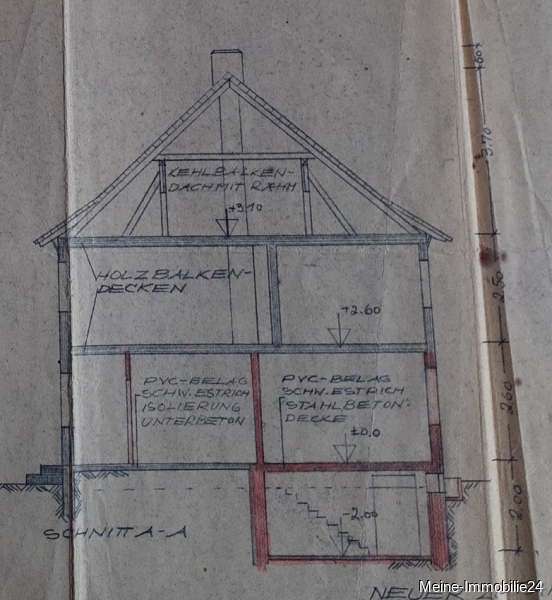 60
3.70
KEHLBALKEN-
DACH MIT RÄHM
+3.10
HOLZBALKEN-
DECKEN
2.50
+2.60
PVC-BELAG
SCHW. ESTRICH
ISOLIERUNG
UNTERBETON
PVC-BELAG
SCHW. ESTRICH
STAHLBETON-
DECKE
±0.0
2.60
-2.00
2.00
SCHNITT A-A
NEUER
Meine-Immobilie24